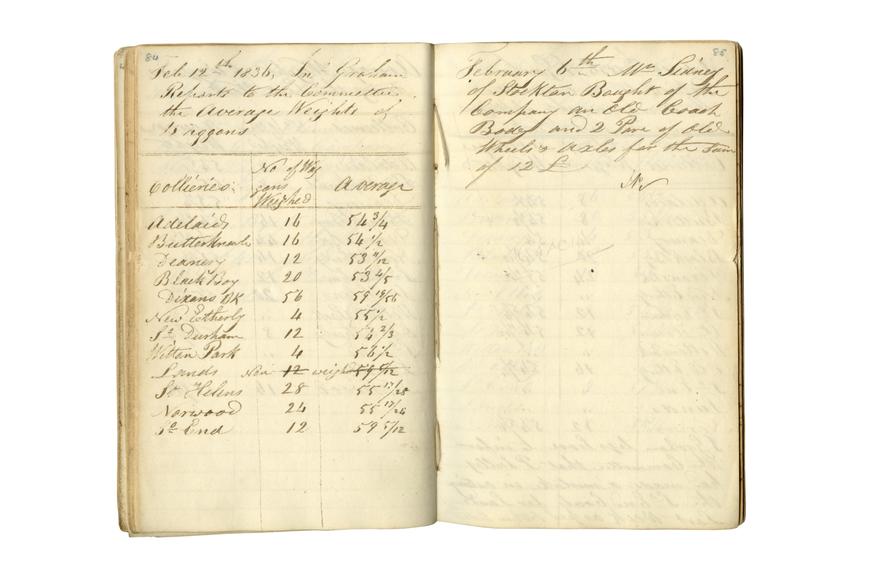 84
Feb 12th 1836, Jno Graham
Reports to the Committee
the Average Weights of
Waggons
Collieries No of Wag Average
gons
Weighed
Adelaids 16 54 3/4
Butterknowle 16 54 1/2
Deanery 12 53 11/12
Black Boy 20 53 4/5
Dixons 56 59 18/56
New Etherly 4 55 1/2
So Durham 12 54 2/3
Witton Park 4 56 1/2
Lands Non 12 weighd 59 5/12
St Helens 28 55 17/28
Norwood 24 55 17/24
So End 12 59 5/12
85
February 6th Mr Sidney
of Stockton Bought of the
Company an Old Coach
Body and 2 Pare of Old
Wheels & Axles for the Sum
of 12 £